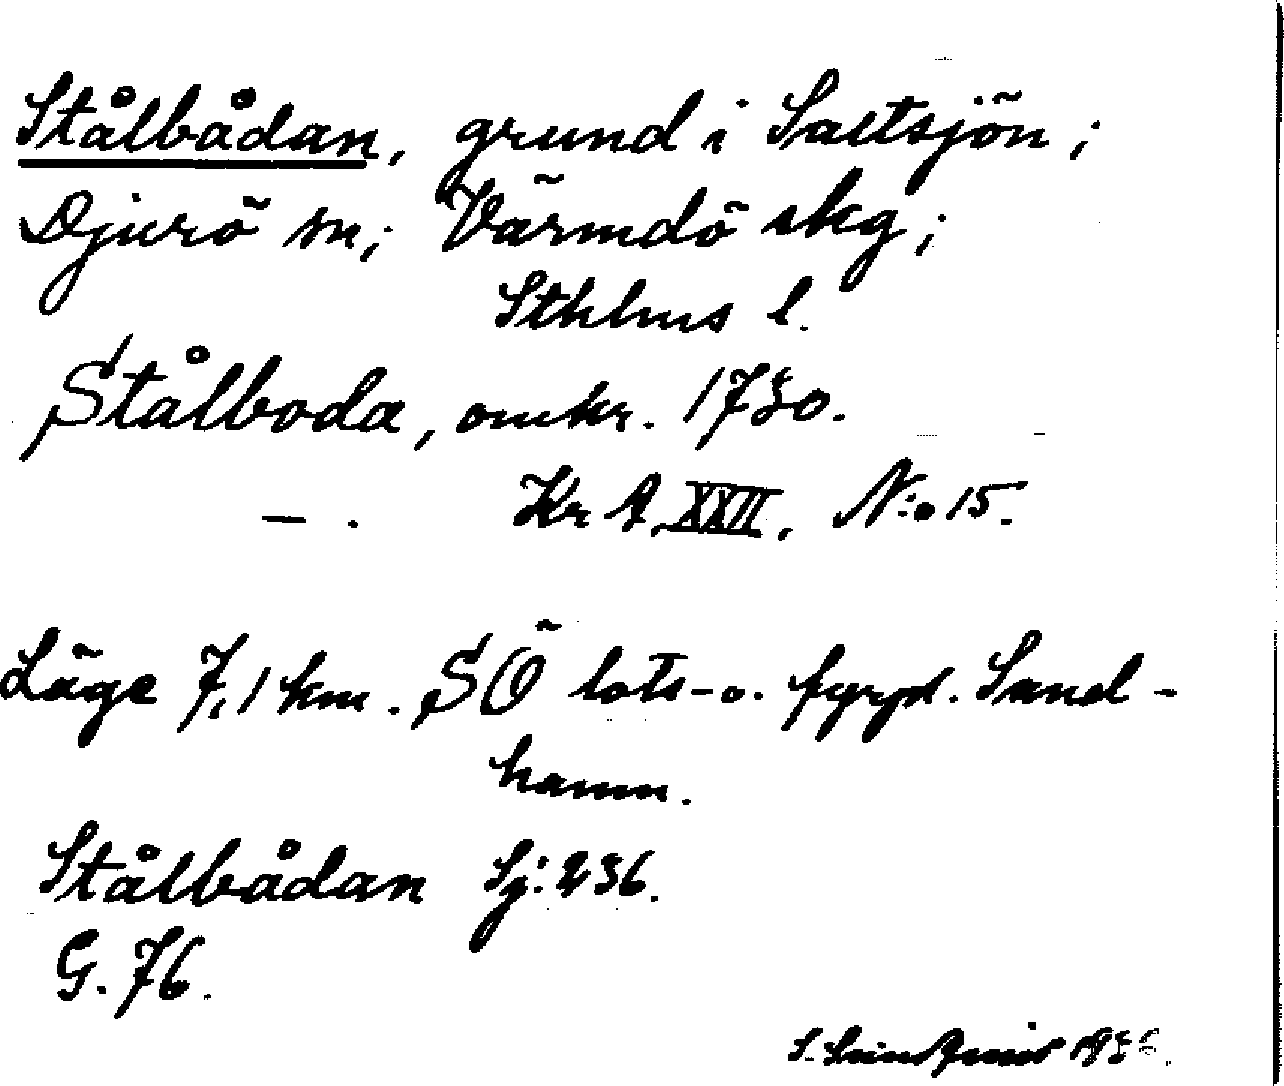 Stålbådan, grund i Saltsjön;
Djurö sn; Värmdö skg;
Sthlms l.
Stålboda, omkr. 1730.
— . Kr A, XXII, N:o 15.
Läge 7,1 km. SÖ lots- o. fyrpl. Sand-
hamn.
Stålbådan Sj: 236.
G. 76.
S.